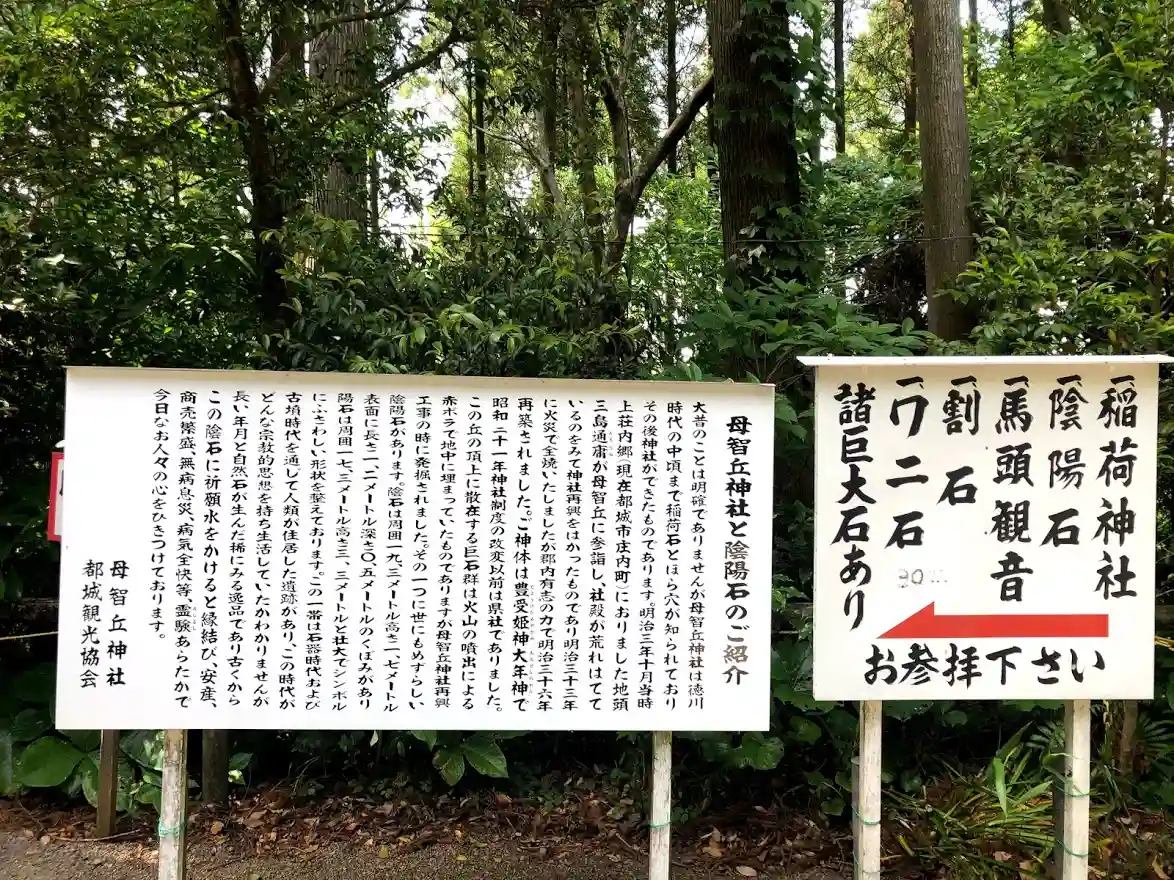 母智丘神社と陰陽石のご紹介
大昔のことは明確でありませんが母智丘神社は徳川
時代の中頃まで稲荷石とほら穴が知られており
その後神社ができたものであります。明治三年十月当時
上荘内郷(現在都城市庄内町)におりました地頭
三島通庸が母智丘に参詣し、社殿が荒れはてて
いるのをみて神社再興をはかったものであり明治三十三年
に火災で全焼いたしましたが郡内有志の力で明治三十六年
再築されました。ご神体は豊受姫神大年神で
昭和二十一年神社制度の改変以前は県社でありました。
この丘の頂上に散在する巨石群は火山の噴出による
赤ボラて地中に埋まっていたものでありますが母智丘神社再興
工事の時に発掘されました。その一つに世にもめずらしい
陰陽石があります。陰石は周囲一九、三メートル高さ二、七メートル
表面に長さ一、八メートル深さ〇、五メートルのくぼみがあり
陽石は周囲一七、三メートル高さ三、三メートルと壮大でシンボル
にふさわしい形状を整えております。この一帯は石器時代および
古墳時代を通して人類が住居した遺跡があり、この時代が
どんな宗教的思想を持ち生活していたかわかりませんが
長い年月と自然石が生んだ稀にみる逸品であり古くから
この陰石に祈願水をかけると縁結び、安産、
商売繁盛、無病息災、病気全快等、霊験あらたかで
今日なお人々の心をひきつけております。
母智丘神社
都城観光協会
一稲荷神社
一陰陽石
一馬頭観音
一割石
一ワニ石
30m
諸巨大石あり
お参拝下さい